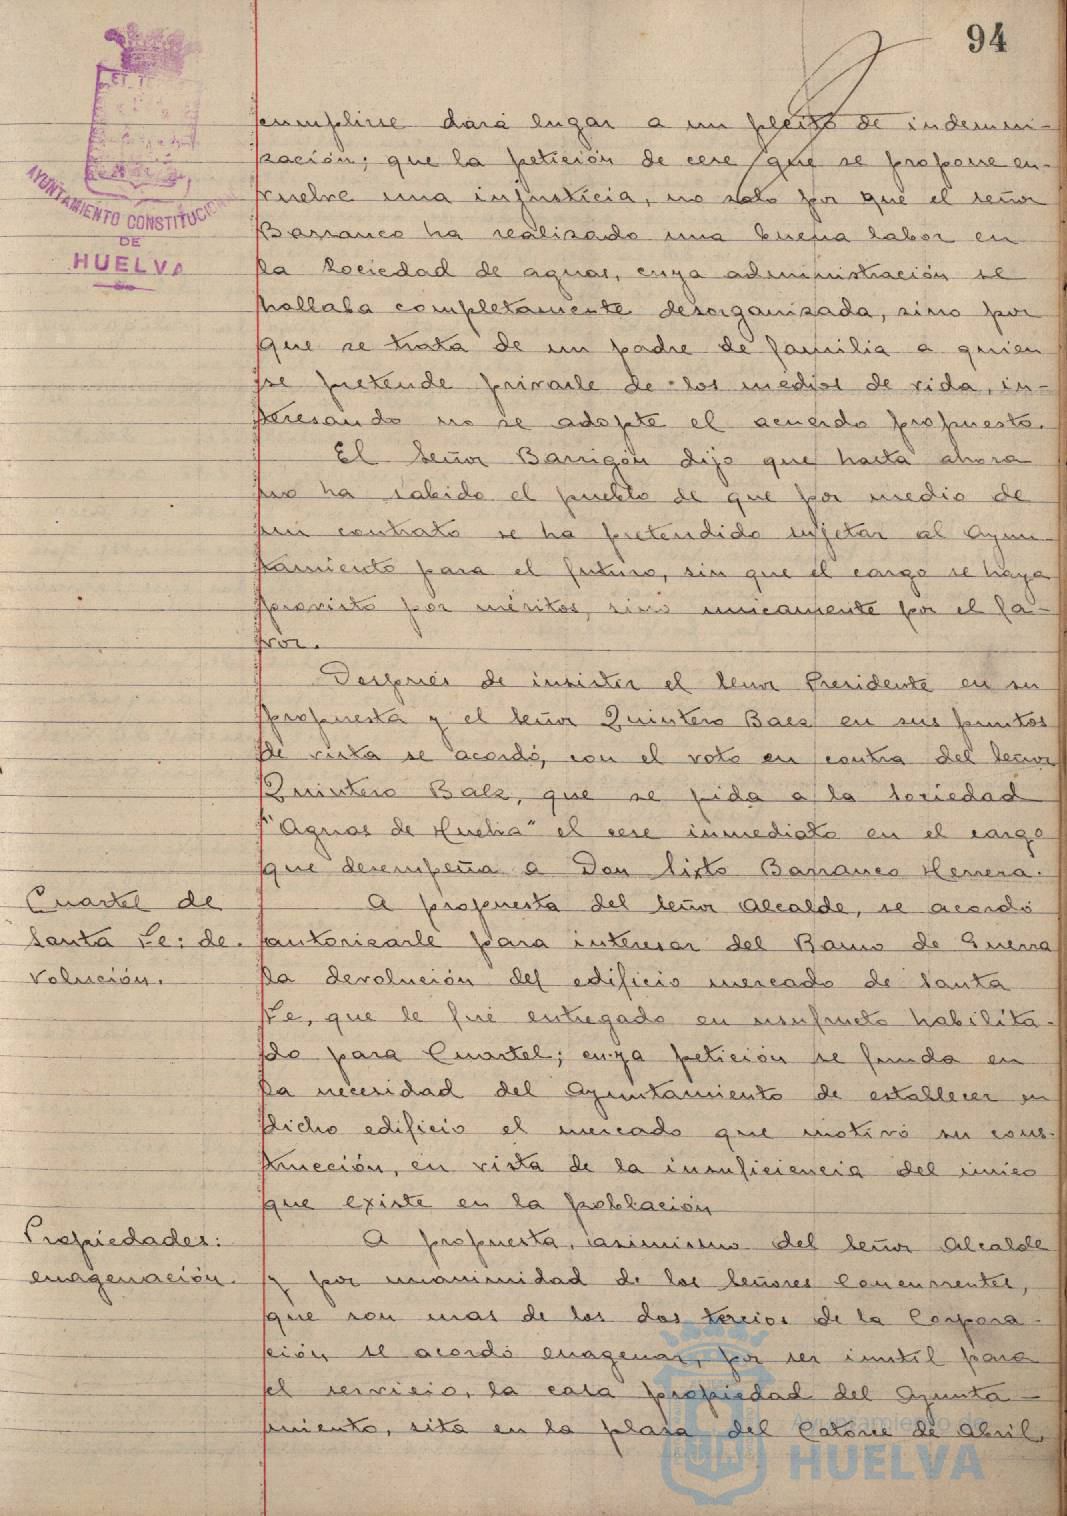 94
AYUNTAMIENTO CONSTITUCIONAL
DE
HUELVA
cumplirse dará lugar a un pleito de indemni-
zación; que la petición de cese que se propone en-
vuelve una injusticia, no solo por que el señor
Barranco ha realizado una buena labor en
la Sociedad de aguas, cuya administración se
hallaba completamente desorganizada, sino por
que se trata de un padre de familia a quien
se pretende privarle de los medios de vida, in-
teresando no se adopte el acuerdo propuesto.
El Señor Barrigón dijo que hasta ahora
no ha sabido el pueblo de que por medio de
un contrato se ha pretendido sujetar al Ayun-
tamiento para el futuro, sin que el cargo se haya
provisto por méritos, sino unicamente por el fa-
vor.
Después de insistir el Señor Presidente en su
propuesta y el Señor Quintero Baez en sus puntos
de vista se acordó, con el voto en contra del Señor
Quintero Baez, que se pida a la Sociedad
"Aguas de Huelva" el cese inmediato en el cargo
que desempeña a Don Sixto Barranco Herrera.
Cuartel de
Santa Fe: de-
volución.
A propuesta del Señor Alcalde, se acordó
autorizarle para interesar del Ramo de Guerra
la devolución del edificio mercado de Santa
Fe, que le fué entregado en usufructo habilita-
do para Cuartel; cuya petición se funda en
la necesidad del Ayuntamiento de establecer en
dicho edificio el mercado que motivó su cons-
trucción, en vista de la insuficiencia del único
que existe en la población
Propiedades:
enagenación.
A propuesta, asimismo del Señor Alcalde
y por unanimidad de los Señores Concurrentes,
que son mas de los dos tercios de la Corpora-
ción se acordó enagenar, por ser inutil para
el servicio, la casa propiedad del Ayunta-
miento, sita en la plaza del Catorce de Abril,
Ayuntamiento de
HUELVA